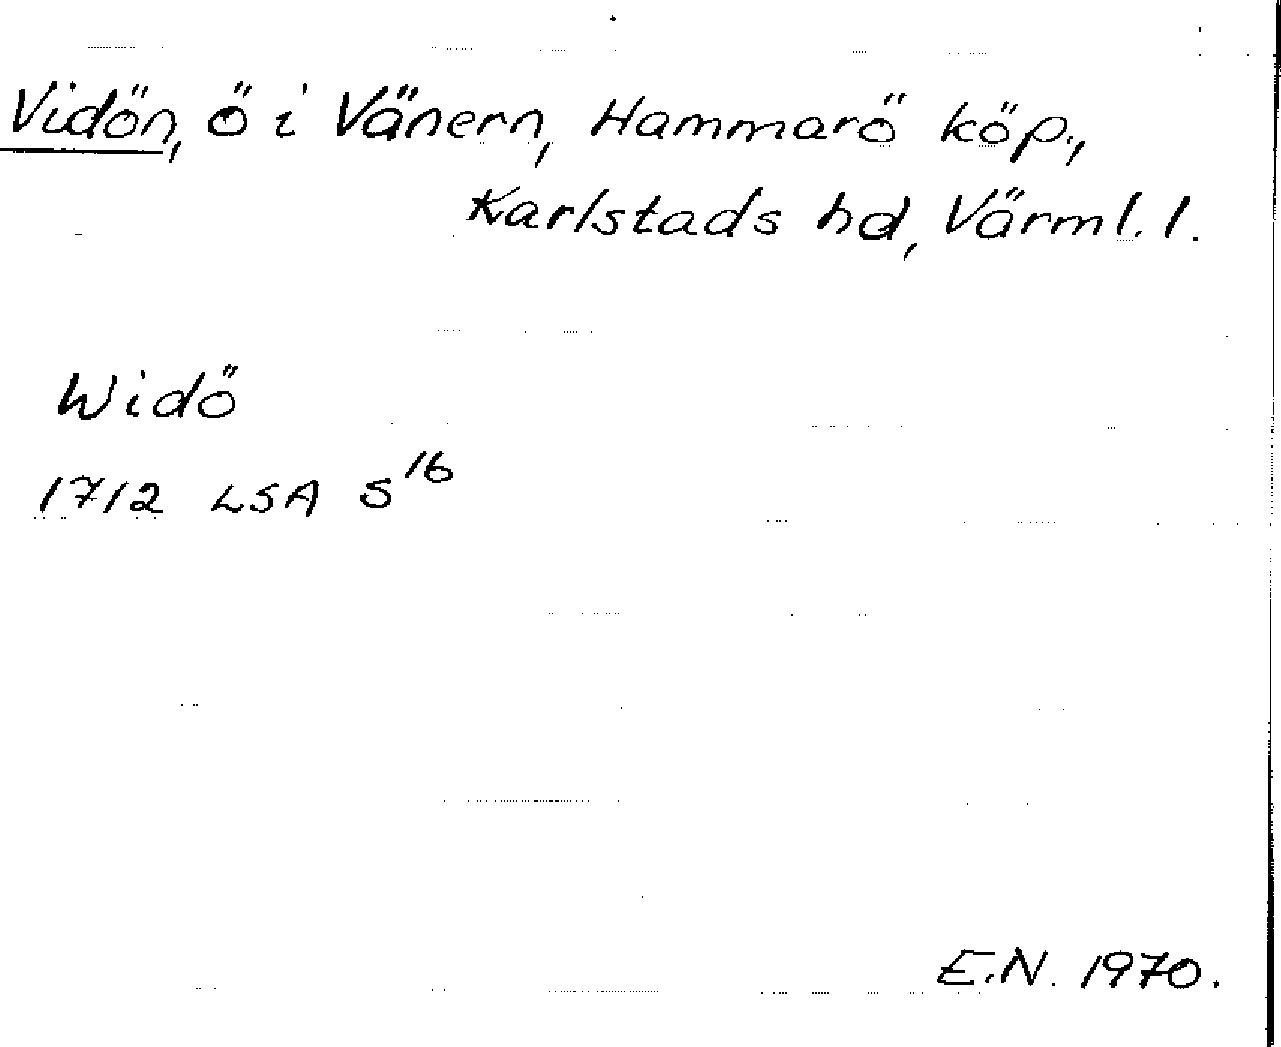 Vidön, ö i Vänern, Hammarö köp.,
Karlstads hd, Värml. l.
Widö
1712 LSA S¹⁶
E.N. 1970.